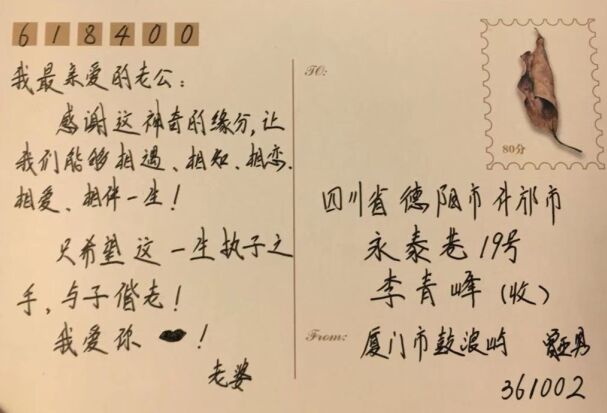 618400
我最亲爱的老公：
感谢这神奇的缘分，让
我们能够相遇、相知、相恋、
相爱、相伴一生！
只希望这一生执子之
手，与子偕老！
我爱你！
老婆
TO:
80分
四川省德阳市什邡市
永泰巷19号
李青峰（收）
From: 厦门市鼓浪屿
361002